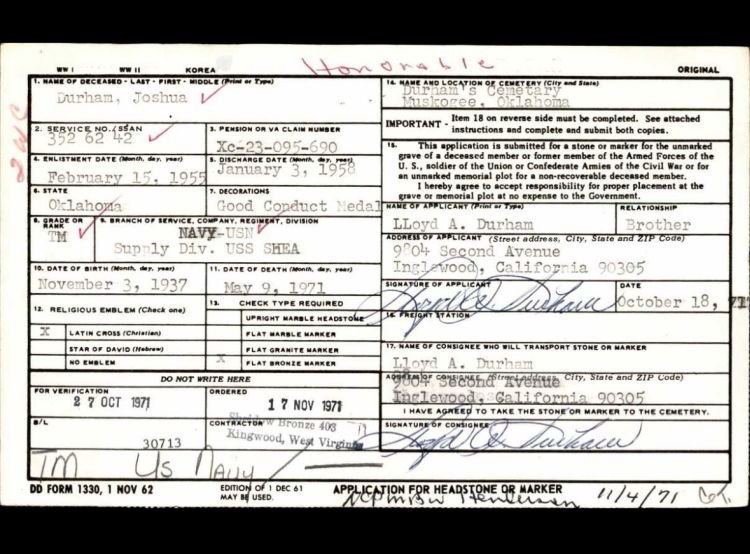 WW I WW II KOREA
Honorable
ORIGINAL
1. NAME OF DECEASED - LAST - FIRST - MIDDLE (Print or Type)
Durham, Joshua
14. NAME AND LOCATION OF CEMETERY (City and State)
Durham's Cemetary
Muskogee, Oklahoma
2. SERVICE NO./SSAN
352 62 42
3. PENSION OR VA CLAIM NUMBER
Xc-23-095-690
IMPORTANT - Item 18 on reverse side must be completed. See attached
instructions and complete and submit both copies.
4. ENLISTMENT DATE (Month, day, year)
February 15, 1955
5. DISCHARGE DATE (Month, day, year)
January 3, 1958
15. This application is submitted for a stone or marker for the unmarked
grave of a deceased member or former member of the Armed Forces of the
U. S., soldier of the Union or Confederate Armies of the Civil War or for
an unmarked memorial plot for a non-recoverable deceased member.
I hereby agree to accept responsibility for proper placement at the
grave or memorial plot at no expense to the Government.
6. STATE
Oklahoma
7. DECORATIONS
Good Conduct Medal
NAME OF APPLICANT (Print or Type)
LLoyd A. Durham
RELATIONSHIP
Brother
8. GRADE OR RANK
TM
9. BRANCH OF SERVICE, COMPANY, REGIMENT, DIVISION
NAVY-USN
Supply Div. USS SHEA
ADDRESS OF APPLICANT (Street address, City, State and ZIP Code)
9004 Second Avenue
Inglewood, California 90305
10. DATE OF BIRTH (Month, day, year)
November 3, 1937
11. DATE OF DEATH (Month, day, year)
May 9, 1971
SIGNATURE OF APPLICANT
Lloyd A. Durham
DATE
October 18, 71
12. RELIGIOUS EMBLEM (Check one)
X LATIN CROSS (Christian)
STAR OF DAVID (Hebrew)
NO EMBLEM
13. CHECK TYPE REQUIRED
UPRIGHT MARBLE HEADSTONE
FLAT MARBLE MARKER
FLAT GRANITE MARKER
X FLAT BRONZE MARKER
16. FREIGHT STATION
17. NAME OF CONSIGNEE WHO WILL TRANSPORT STONE OR MARKER
Lloyd A. Durham
ADDRESS OF CONSIGNEE (Street address, City, State and ZIP Code)
9004 Second Avenue
Inglewood, California 90305
DO NOT WRITE HERE
FOR VERIFICATION
27 OCT 1971
ORDERED
17 NOV 1971
I HAVE AGREED TO TAKE THE STONE OR MARKER TO THE CEMETERY.
B/L
30713
CONTRACTOR
Bronze 403
Kingwood, West Virginia
SIGNATURE OF CONSIGNEE
Lloyd A. Durham
TM US NAVY
DD FORM 1330, 1 NOV 62
EDITION OF 1 DEC 61
MAY BE USED.
APPLICATION FOR HEADSTONE OR MARKER
Henderson
11/4/71